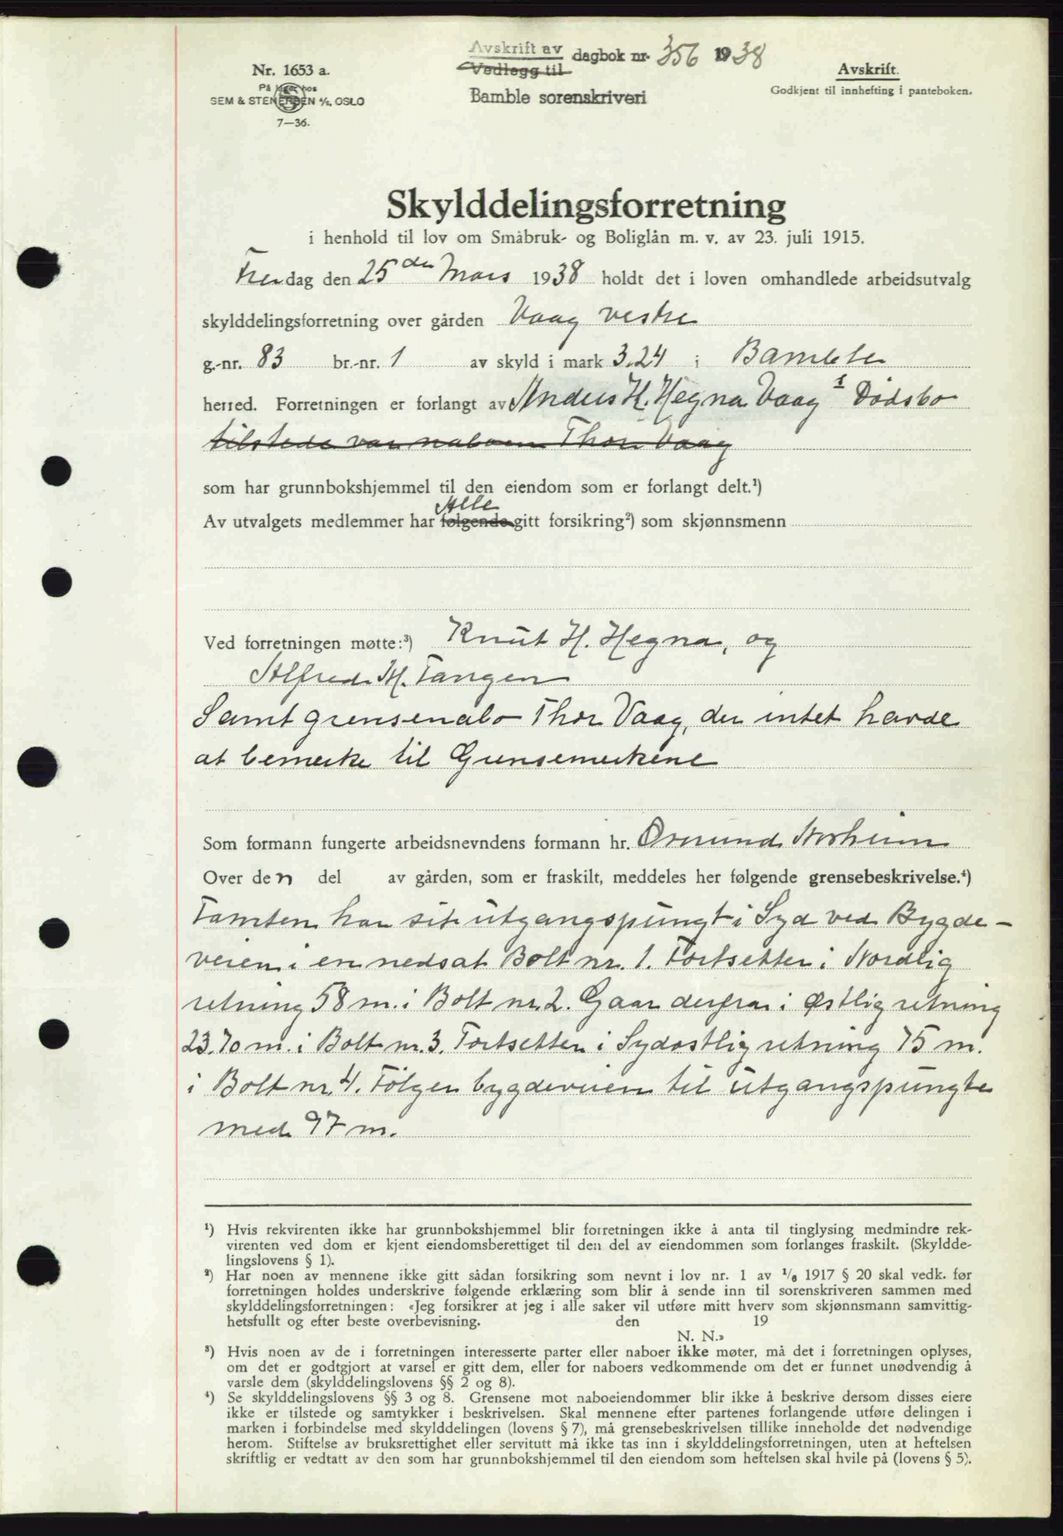 Nr. 1653 a.
På lager hos
SEM & STENERSEN A/S, OSLO
7—36.
Avskrift av
Vedlegg til
dagbok nr. 356 1938
Bamble sorenskriveri
Avskrift.
Godkjent til innhefting i panteboken.
Skylddelingsforretning
i henhold til lov om Småbruk- og Boliglån m. v. av 23. juli 1915.
Fredag den 25 de Mars 1938 holdt det i loven omhandlede arbeidsutvalg
skylddelingsforretning over gården Vaag vestre
g.-nr. 83 br.-nr. 1 av skyld i mark 3.24 i Bamble
herred. Forretningen er forlangt av Anders H. Hegna Vaag s Dødsbo
tilstede var naboen Thor Vaag
som har grunnbokshjemmel til den eiendom som er forlangt delt.¹)
Alle
Av utvalgets medlemmer har følgende gitt forsikring²) som skjønnsmenn
Ved forretningen møtte:³) Knut H. Hegna, og
Alfred M. Tangen
Samt grensenabo Thor Vaag, der intet havde
at bemerke til Grensemerkene
Som formann fungerte arbeidsnevndens formann hr. Ormund Norheim
Over den del av gården, som er fraskilt, meddeles her følgende grensebeskrivelse.⁴)
Tomten har sit utgangspungt i Syd ved Bygde-
veien i en nedsat Bolt nr. 1. Fortsetter i Nordlig
retning 58 m. i Bolt nr. 2. Gaar derfra i østlig retning
23.70 m. i Bolt nr. 3. Fortsetter i Sydøstlig retning 75 m.
i Bolt nr. 4. Følger bygdeveien til utgangspungte
med 97 m.
¹) Hvis rekvirenten ikke har grunnbokshjemmel blir forretningen ikke å anta til tinglysing medmindre rek-
virenten ved dom er kjent eiendomsberettiget til den del av eiendommen som forlanges fraskilt. (Skyldde-
lingslovens § 1).
²) Har noen av mennene ikke gitt sådan forsikring som nevnt i lov nr. 1 av ¹/₆ 1917 § 20 skal vedk. før
forretningen holdes underskrive følgende erklæring som blir å sende inn til sorenskriveren sammen med
skylddelingsforretningen: «Jeg forsikrer at jeg i alle saker vil utføre mitt hverv som skjønnsmann samvittig-
hetsfullt og efter beste overbevisning. den 19
N. N.»
³) Hvis noen av de i forretningen interesserte parter eller naboer ikke møter, må det i forretningen oplyses,
om det er godtgjort at varsel er gitt dem, eller for naboers vedkommende om det er funnet unødvendig å
varsle dem (skylddelingslovens §§ 2 og 8).
⁴) Se skylddelingslovens §§ 3 og 8. Grensene mot naboeiendommer blir ikke å beskrive dersom disses eiere
ikke er tilstede og samtykker i beskrivelsen. Skal mennene efter partenes forlangende utføre delingen i
marken i forbindelse med skylddelingen (lovens § 7), må grensebeskrivelsen tillike inneholde det nødvendige
herom. Stiftelse av bruksrettighet eller servitutt må ikke tas inn i skylddelingsforretningen, uten at heftelsen
skriftlig er vedtatt av den som har grunnbokshjemmel til den eiendom som heftelsen skal hvile på (lovens § 5).